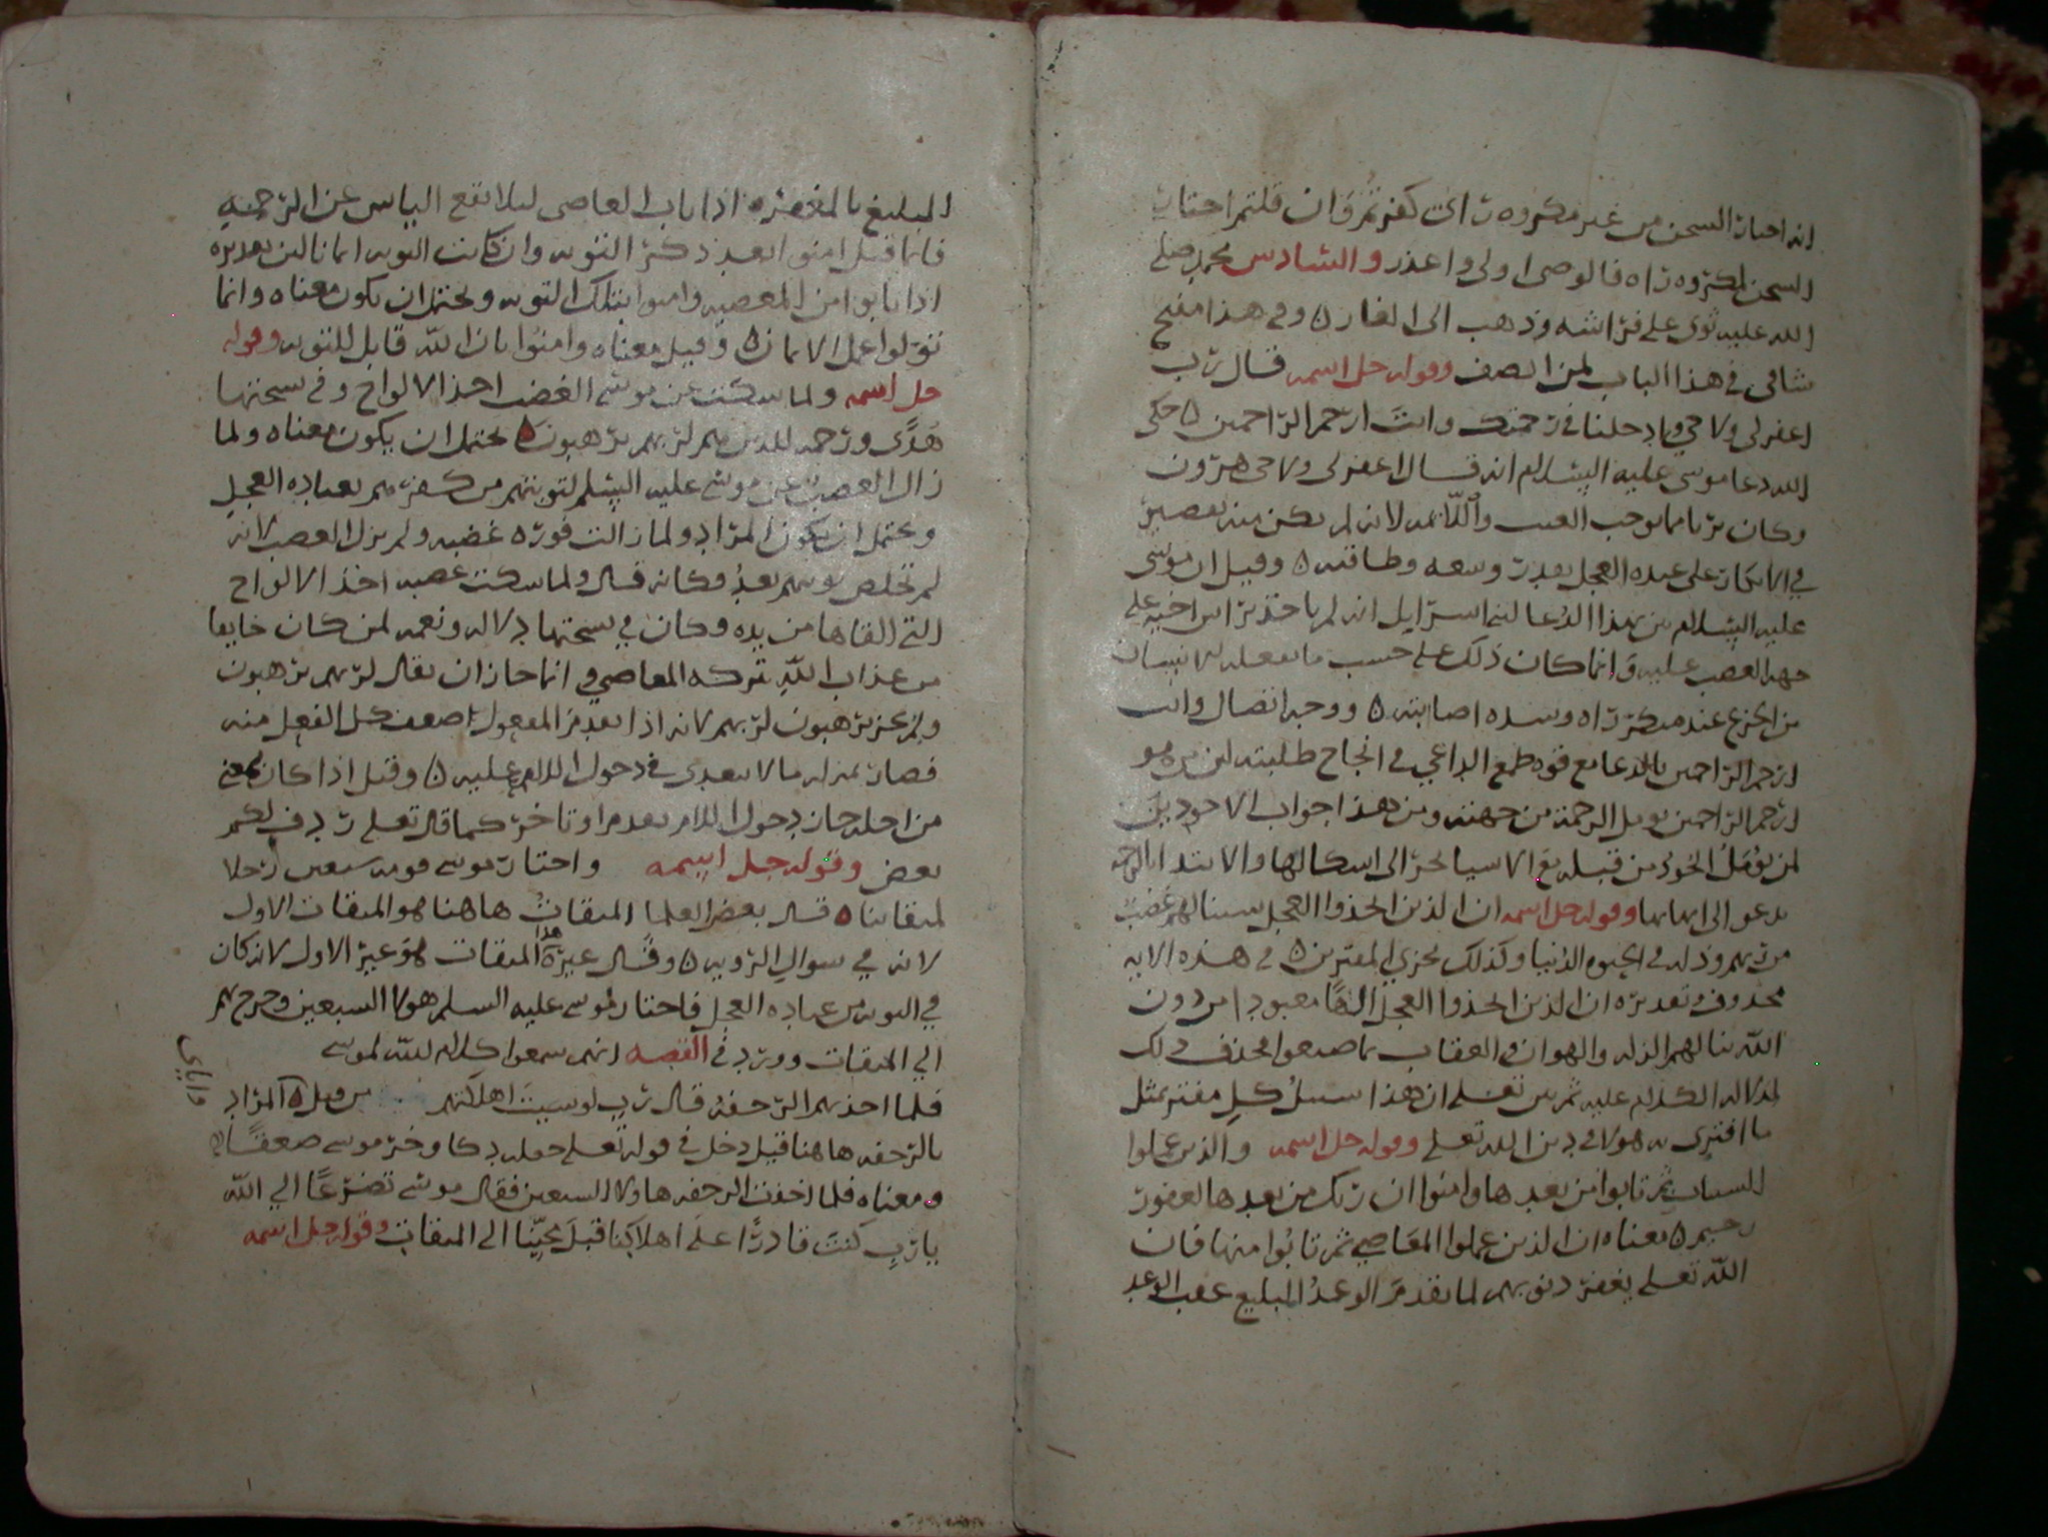 انه احتار السجن من غير مكروه راى كفرتم وان قلتم احتار
السجن لمكروه راه فالوصى اولى واعذر والسادس محمد صلى
الله عليه ثوى على فراشه وذهب الى الغار ٥ وفي هذا مقنع
شافى في هذا الباب لمن انصف وقوله جل اسمه قال رب
اغفر لى ولاخى وادخلنا في رحمتك وانت ارحم الراحمين ٥ حكى
الله دعا موسى عليه السلام انه قال اغفر لى ولاخى هرون
وكان بريا مما يوجب العتب واللائمه لانه لم يكن منه تقصير
في الانكار على عبده العجل بقدر وسعه وطاقته ٥ وقيل ان موسى
عليه السلام بين بهذا الدعا لبنى اسرايل انه لم ياخذ براس اخيه على
جهه الغضب عليه وانما كان ذلك على حسب ما يفعله الانسان
من الجزع عند مكر راه وشده اصابته ٥ ووجه اتصال وانت
ارحم الراحمين بالدعا مع قوه طمع الداعي في انجاح طلبته لمن هو
ارحم الراحمين يومل الرحمة من جهته ومن هذا جواب الاجودين
لمن يومل الجود من قبله مع الاسيا يجر الى اشكالها والابتدا بالرحمه
يدعو الى اتمامها وقوله جل اسمه ان الذين اتخذوا العجل سينالهم غضب
من ربهم وذله في الحيوه الدنيا وكذلك نجزي المفترين ٥ في هذه الايه
محذوف وتقديره ان الذين اتخذوا العجل الها معبودا من دون
الله ينالهم الذله والهوان والعقاب بما صنعوا فحذف ذلك
لدلاله الكلام عليه ثم بين تعلى ان هذا سبيل كل مفتر بمثل
ما افترى به هولا في دين الله تعلى وقوله جل اسمه والذين عملوا
السيات ثم تابوا من بعدها وامنوا ان ربك من بعدها لغفور
رحيم ٥ معناه ان الذين عملوا المعاصي ثم تابوا منها فان
الله تعلى يغفر ذنوبهم لما تقدم الوعد البليغ عقب الوعد
البليغ بالمغفره اذا تاب العاصى ليلا يقع الياس عن الرحمه
فانما قيل امنوا بعد ذكر التوبه وان كانت التوبه ايمانا لان تقديره
اذا تابوا من المعصيه وامنوا بتلك التوبه ويحتمل ان يكون معناه وانما
تقولوا عمل الايمان ٥ وقيل معناه وامنوا بان الله قابل للتوبه وقوله
جل اسمه ولما سكت عن موسى الغضب اخذ الالواح وفي نسختها
هدى ورحمه للذين هم لربهم يرهبون ٥ يحتمل ان يكون معناه ولما
زال الغضب عن موسى عليه السلم لتوبتهم من كفرهم بعباده العجل
ويحتمل ان يكون المراد ولما زالت فوره غضبه ولم يزل الغضب لانه
لم تخلص توبتهم بعد فكانه قال ولما سكت غضبه اخذ الالواح
التي القاها من يده وكان في نسختها دلاله ونعمه لمن كان خايفا
من عذاب الله تركه المعاصي وانما جاز ان يقال لربهم يرهبون
ولم يجز يرهبون لربهم لانه اذا تقدم المفعول ضعف كل الفعل منه
فصار بمنزله ما لا يتعدى في دخول اللام عليه ٥ وقيل اذا كان بمعنى
من اجله جاز دخول اللام تقدم او تاخر كما قال تعلى ردف لكم
بعض وقوله جل اسمه واختار موسى قومه سبعين رجلا
لميقاتنا ٥ قال بعض العلما الميقات هاهنا هو الميقات الاول
لانه في سوال الرويه ٥ وقال غيره هذا الميقات هو غير الاول لانه كان
في التوبه من عباده العجل فاختار موسى عليه السلم هولا السبعين وخرج بهم
الي الميقات وورد في القصه انهم سمعوا كلام الله لموسى
فلما اخذتهم الرجفه قال رب لو شيت اهلكتهم من قبل ٥ المراد
بالرجفه هاهنا قيل دخل في قوله تعلى جعله دكا وخر موسى صعقا
ومعناه فلما اخذت الرجفه هاولا السبعين فقال موسى تضرعا الي الله
يا رب كنت قادرا على اهلاكنا قبل مجيينا الى الميقات وقوله جل اسمه
واياى